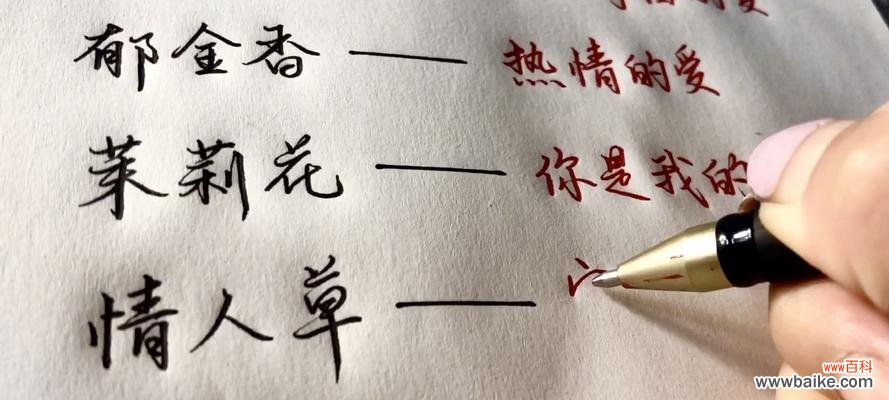 郁金香——热情的爱
茉莉花——你是我的
情人草——
www百科
www.baike.com